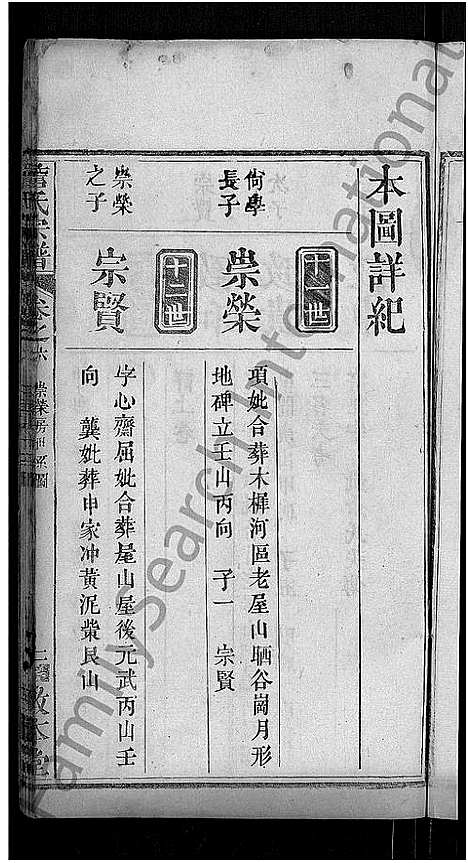 本圖詳紀
十一世
尙學長子
崇榮
項妣合葬木樨河區老屋山晒谷崗月形
地碑立壬山丙向　子一　宗賢
十二世
崇榮之子
宗賢
字心齋屈妣合葬屋山屋後元武丙山壬
向　龔妣葬申家冲黄泥粜艮山
氏宗譜
卷之六
崇榮房世系圖
敦本堂
FamilySearch International